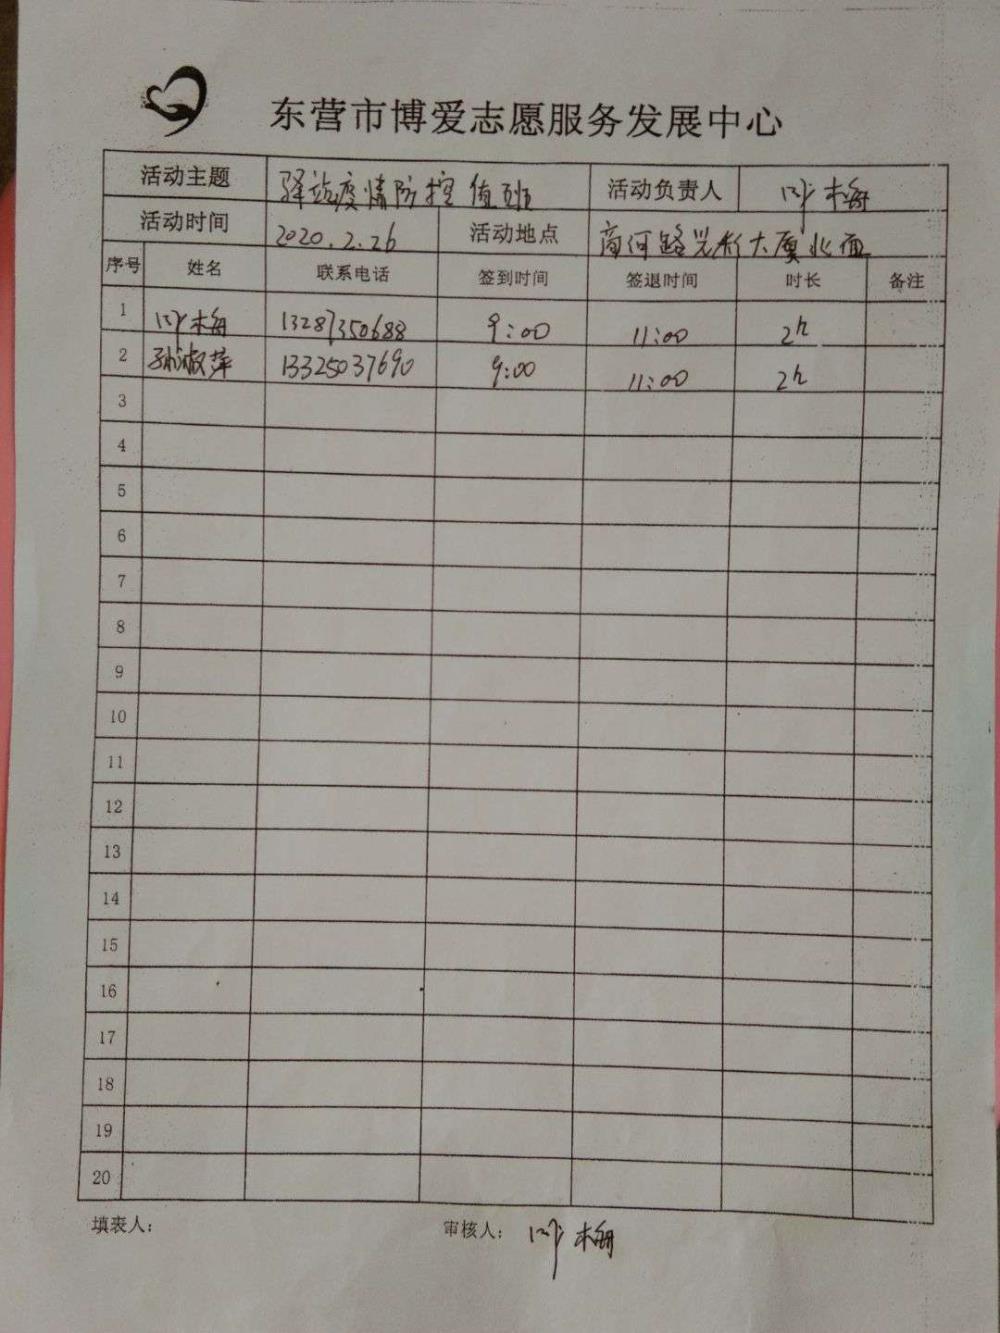 东营市博爱志愿服务发展中心
活动主题 驿站疫情防控值班 活动负责人 叶梅
活动时间 2020.2.26 活动地点 商河路光彩大厦北面
序号 姓名 联系电话 签到时间 签退时间 时长 备注
1 叶梅 13287350688 9:00 11:00 2h
2 孙淑萍 13325037690 9:00 11:00 2h
3
4
5
6
7
8
9
10
11
12
13
14
15
16
17
18
19
20
填表人: 审核人: 叶梅